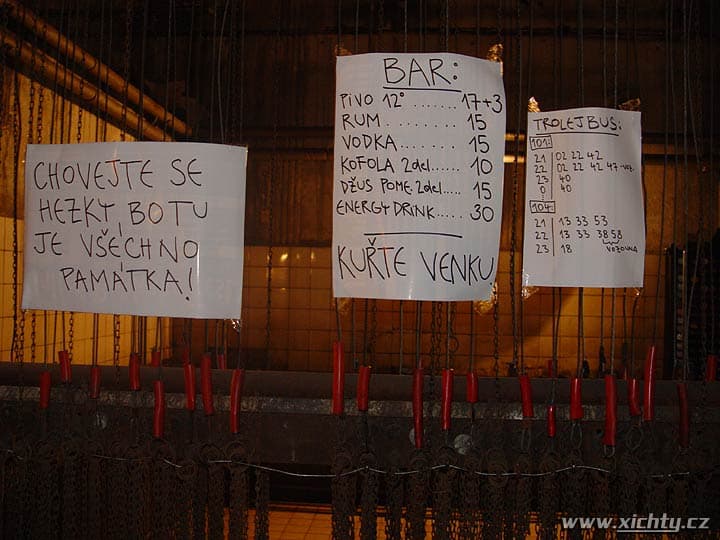 CHOVEJTE SE
HEZKY, BO TU
JE VŠECHNO
PAMÁTKA!
BAR:
PIVO 12° ....... 17+3
RUM ......... 15
VODKA ....... 15
KOFOLA 2del ..... 10
DŽUS POME. 2del ..... 15
ENERGY DRINK ..... 30
KUŘTE VENKU
TROLEJBUS:
101:
21 | 02 22 42
22 | 02 22 42 47-voz.
23 | 40
0 | 40
104:
21 | 13 33 53
22 | 13 33 38 58
23 | 18 VOZOVNA
www.xichty.cz